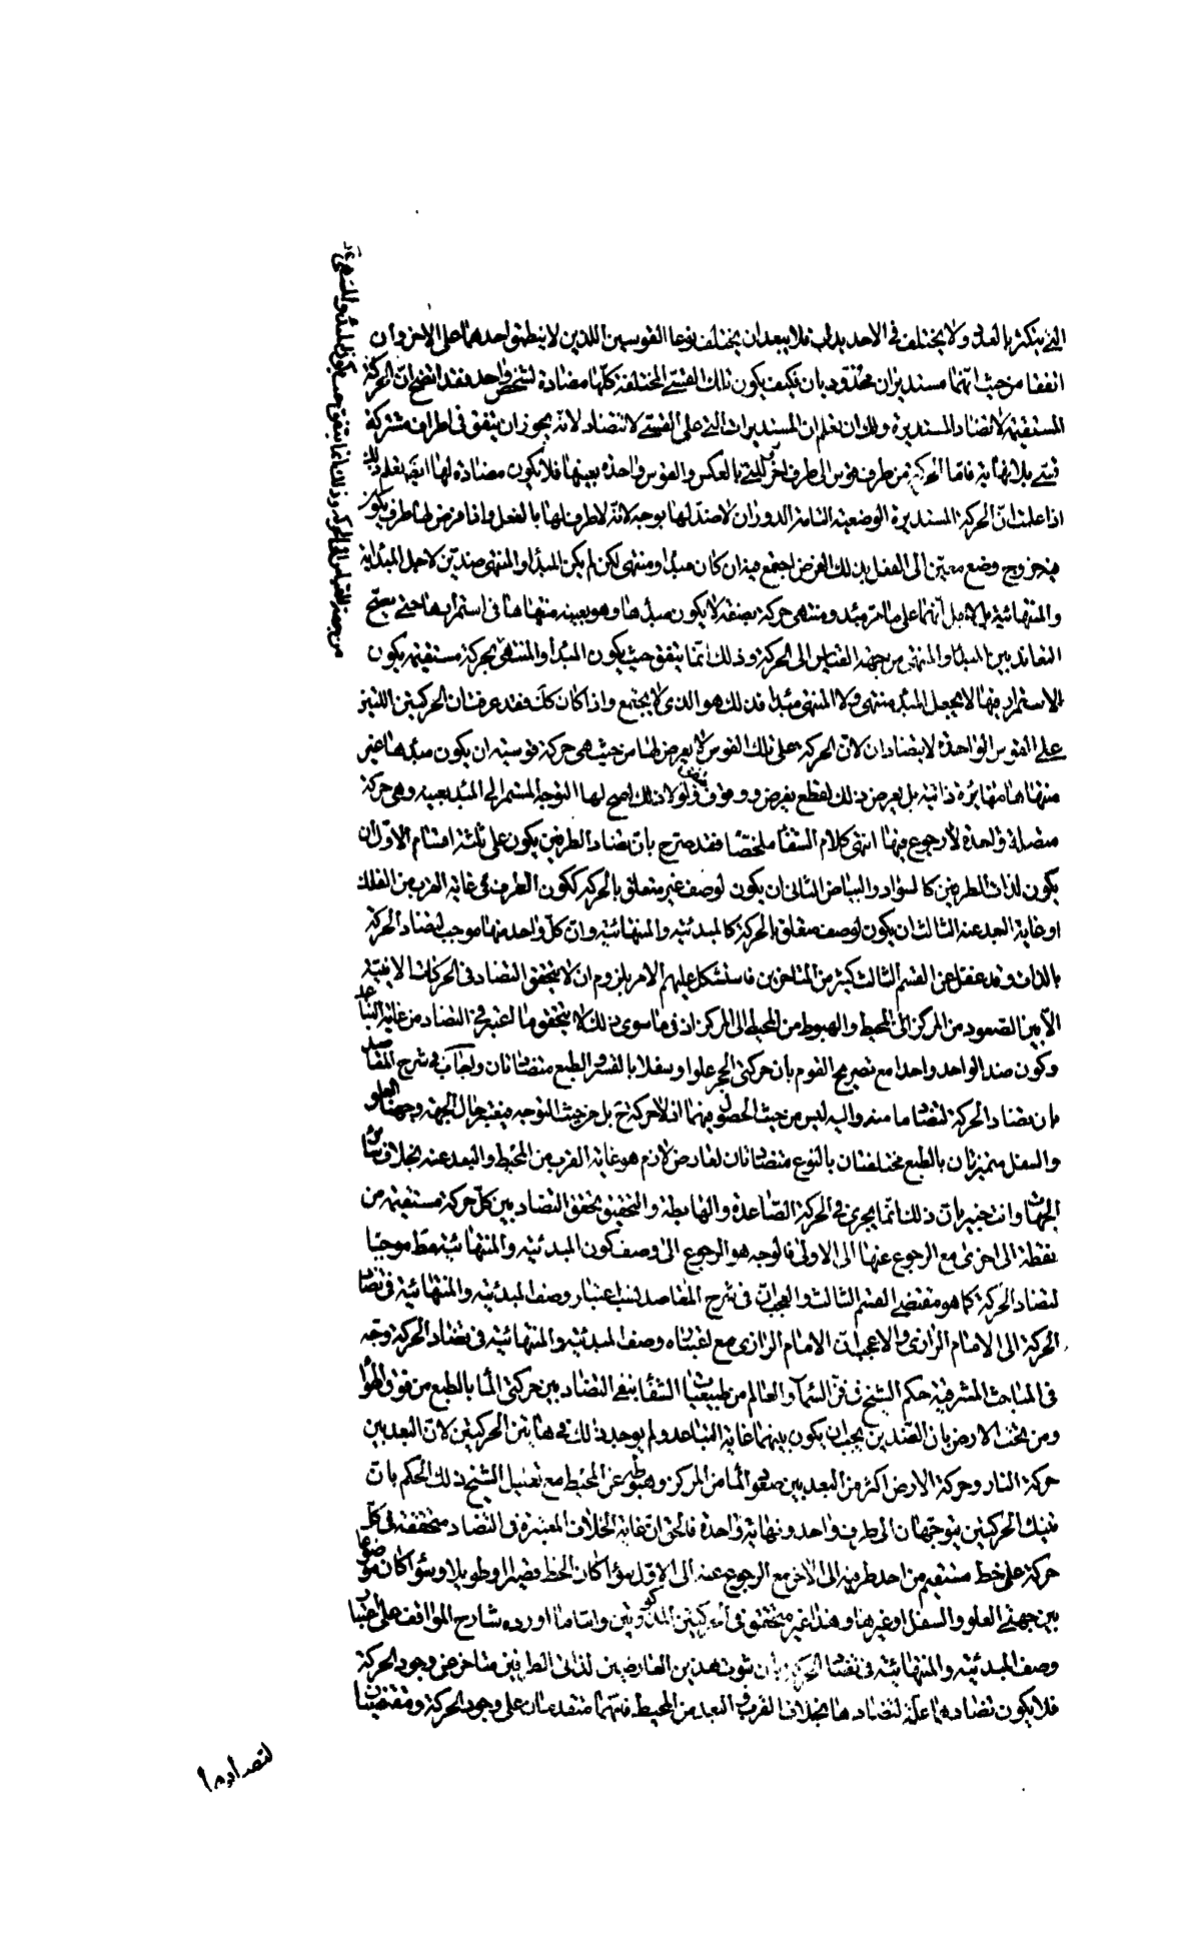 التي يتكثر بالعدد ولا يختلف في الاحديداب فلا يبعد ان يختلف نوعا القوسين اللذين لا ينطبق احدهما على الاخر وان
اتفقا من حيث انهما مستديران محدودبان فكيف يكون تلك القسى المختلفة كلها مضادة لشخص واحد فقد اتضح ان الحركة
المستقيمة لا تضاد المستديرة ولك ان تعلم ان المستديرات التي على القسى لا تتضاد لانه يجوز ان يتفق في اطراف مشتركة
قسى بلا نهاية فاما الحركة من طرف قوس الى طرف اخر التي بالعكس والقوس واحدة بعينها فلا يكون مضادة لها ايضا يعلم ذلك
اذا علمت ان الحركة المستديرة الوضعية التامة الدوران لا ضد لها بوجه لانه لا طرف لها بالفعل واذا فرض لها طرف يكون
بخروج وضع معين الى الفعل بذلك الفرض اجتمع فيه ان كان مبدا ومنتهى لكن لم يكن المبدا والمنتهى ضدين لاجل المبدائية
والمنتهائية بل لاجل انهما على ما مر مبدء ومنتهى حركة بصفة لا يكون مبدءها وهو بعينه منتهاها في استمرارها حتى يصح
التعاند بين المبدا والمنتهى من جهة القياس الى الحركة وذلك انما يتفق حيث يكون المبدأ والمنتهى لحركة مستقيمة يكون
الاستمرار فيها لا يجعل المبدء منتهى ولا المنتهى مبدا فذلك هو الذى لا يجتمع واذا كان كك فقد عرفت ان الحركتين اللتين
على القوس الواحدة لا يتضادان لان الحركة على تلك القوس لا يعرض لها من حيث هى حركة قوسية ان يكون مبدءها غير
منتهاها مغايرة ذاتية بل يعرض ذلك لقطع يفرض و وقوف يتفق ولولا ذلك لصح لها التوجه المستمر الى المبدء بعينه وهى حركة
متصلة واحدة لا رجوع فيها انتهى كلام الشفا ملخصا فقد صرح بان تضاد الطرفين يكون على ثلثة اقسام الاول ان
يكون لذات الطرفين كالسواد والبياض الثانى ان يكون لوصف غير متعلق بالحركة ككون الطرف في غاية القرب من الفلك
او غاية البعد عنه الثالث ان يكون لوصف متعلق بالحركة كالمبدئية والمنتهائية وان كل واحد منها موجب لتضاد الحركة
بالذات وقد غفل عن القسم الثالث كثير من المتاخرين فاستشكل عليهم الامر بلزوم ان لا يتحقق التضاد في الحركات الاينية
الا بين الصعود من المركز الى المحيط والهبوط من المحيط الى المركز اذ في ما سوى ذلك لا يتحقق ما اعتبر في التضاد من غاية التباعد
وكون ضد الواحد واحدا مع تصريح القوم بان حركتى الحجر علوا وسفلا بالقسر والطبع متضادتان واجاب في شرح المقاصد
بان تضاد الحركة لتضاد ما منه واليه ليس من حيث الحصول فيهما اذ لا حركة ح بل من حيث التوجه فيعتبر حال الجهة وجهتا العلو
والسفل متميزتان بالطبع مختلفتان بالنوع متضادتان لعارض لازم هو غاية القرب من المحيط والبعد عنه بخلاف سائر
الجهات وانت خبير بان ذلك انما يجرى في الحركة الصاعدة والهابطة والتحقيق تحقق التضاد بين كل حركة مستقيمة من
نقطة الى اخرى مع الرجوع عنها الى الاولى فالوجه هو الرجوع الى وصف كون المبدئية والمنتهائية فقط موجبا
لتضاد الحركة كما هو مقتضى القسم الثالث والعجب ان في شرح المقاصد نسب اعتبار وصف المبدئية والمنتهائية في تضاد
الحركة الى الامام الرازى والاعجب ان الامام الرازى مع اعتباره وصف المبدئية والمنتهائية في تضاد الحركة وجه
في المباحث المشرقية حكم الشيخ في فن السماء والعالم من طبيعيات الشفا بنفى التضاد بين حركتى الماء بالطبع من فوق الهواء
ومن تحت الارض بان الضدين يجب ان يكون بينهما غاية التباعد ولم يوجد ذلك في هاتين الحركتين لان البعد بين
حركة النار وحركة الارض اكثر من البعد بين صعود الماء من المركز وهبوطه عن المحيط مع تعليل الشيخ ذلك الحكم بان
تينك الحركتين يتوجهان الى طرف واحد ونهاية واحدة فالحق ان غاية الخلاف المعتبرة في التضاد متحققة في كل
حركة على خط مستقيم من احد طرفيه الى الاخر مع الرجوع عنه الى الاول سواء كان الخط قصيرا او طويلا وسواء كان موضوعا
بين جهتى العلو والسفل او غيرها وهذا غير متحقق في الحركتين المذكورتين واما ما اورده شارح المواقف على اعتبار
وصف المبدئية والمنتهائية في تضاد الحركة بان ثبوت هذين العارضين لذاتى الطرفين متاخر عن وجود الحركة
فلا يكون تضادهما علة لتضادها بخلاف القرب والبعد من المحيط فانهما متقدمان على وجود الحركة ومقتضيان
لتضادها
من جهة القياس الى الحركة وذلك انما يتفق حيث يكون المبدء والمنتهى